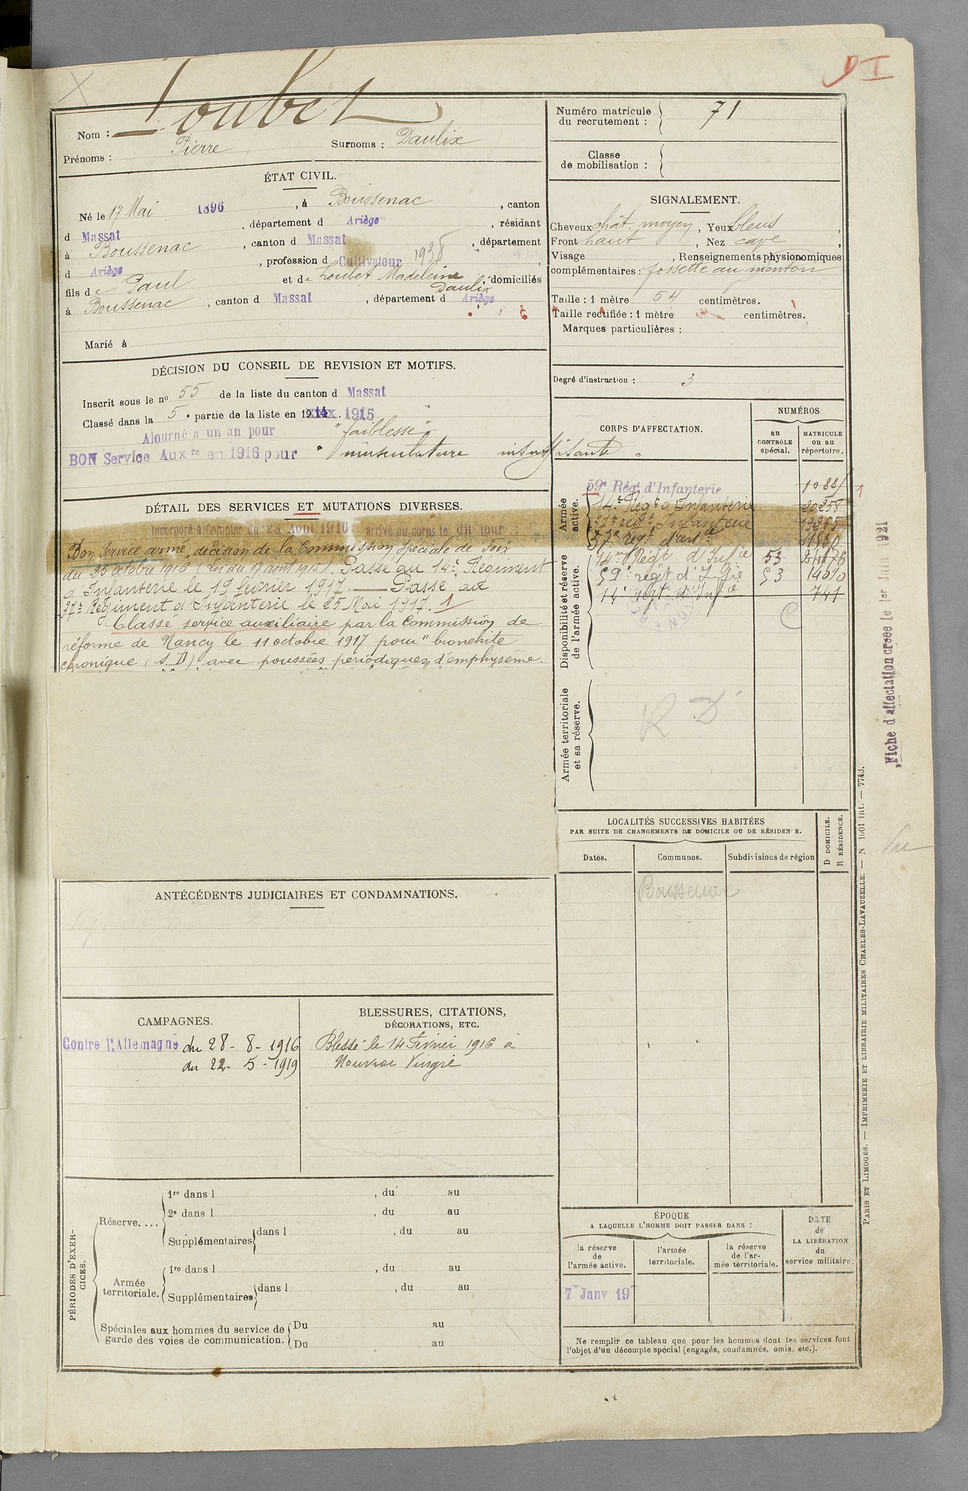 Nom : Loubet
Prénoms : Pierre Surnoms : Daulix
ÉTAT CIVIL.
Né le 17 Mai 1896, à Boussenac, canton
d Massat, département d Ariège, résidant
à Boussenac, canton d Massat, département
d Ariège, profession d Cultivateur 1938
fils de Paul et de Loubet Madeleine, domiciliés
Daulix
à Boussenac, canton d Massat, département d Ariège
Marié à
DÉCISION DU CONSEIL DE REVISION ET MOTIFS.
Inscrit sous le no 55 de la liste du canton d Massat
Classé dans la 5e partie de la liste en 1915
Ajourné a un an pour "faiblesse"
BON Service Auxre en 1916 pour "musculature insuffisante"
DÉTAIL DES SERVICES ET MUTATIONS DIVERSES.
Incorporé à compter du 28 Août 1916 arrivé au corps le dit jour
Bon service armé, décision de la Commission spéciale de Foix
du 25 octobre 1916 (Loi du 17 août 1915). Passé au 14e Régiment
d'Infanterie le 19 février 1917. Passé au
37e Régiment d'Infanterie le 25 Mai 1917. 1
Classé service auxiliaire par la Commission de
réforme de Nancy le 11 octobre 1917 pour "bronchite
chronique (S.D)" avec poussées périodiques d'emphysème.
ANTÉCÉDENTS JUDICIAIRES ET CONDAMNATIONS.
CAMPAGNES.
Contre l'Allemagne du 28-8-1916
au 22-5-1919
BLESSURES, CITATIONS,
DÉCORATIONS, ETC.
Blessé le 14 Février 1916 à
Nouvron Vingré
PÉRIODES D'EXERCICES.
Réserve....
1re dans l , du au
2e dans l , du au
Supplémentaires dans l , du au
Armée territoriale.
1re dans l , du au
Supplémentaires dans l , du au
Spéciales aux hommes du service de garde des voies de communication.
Du au
Du au
Numéro matricule du recrutement : 71
Classe de mobilisation :
SIGNALEMENT.
Cheveux chât. moyen, Yeux bleus,
Front haut, Nez cave,
Visage , Renseignements physionomiques
complémentaires : fossette au menton
Taille : 1 mètre 54 centimètres.
Taille rectifiée : 1 mètre centimètres.
Marques particulières :
Degré d'instruction : 3
CORPS D'AFFECTATION.
NUMÉROS
au CONTRÔLE spécial.
MATRICULE ou au répertoire.
Armée active.
59e Rég. d'Infanterie
14e Régt d'Infanterie
37e régt d'Infanterie
37e régt d'art
Disponibilité et réserve de l'armée active.
14e Régt d'Infie 53
59e régt d'Infie 53
14e régt d'Infie 741
Armée territoriale et sa réserve.
R D
LOCALITÉS SUCCESSIVES HABITÉES
PAR SUITE DE CHANGEMENTS DE DOMICILE OU DE RÉSIDENCE.
Dates. Communes. Subdivisions de région
D DOMICILE.
R RÉSIDENCE.
Boussenac
ÉPOQUE
A LAQUELLE L'HOMME DOIT PASSER DANS :
la réserve de l'armée active.
l'armée territoriale.
la réserve de l'armée territoriale.
DATE de LA LIBÉRATION du service militaire.
7 Janv 19
Ne remplir ce tableau que pour les hommes dont les services font
l'objet d'un décompte spécial (engagés, condamnés, omis, etc.).
Fiche d'affectation créée le 1er Juin 1921
Vu
PARIS ET LIMOGES. — IMPRIMERIE ET LIBRAIRIE MILITAIRES CHARLES-LAVAUZELLE. — N 1001 int. — 7743.